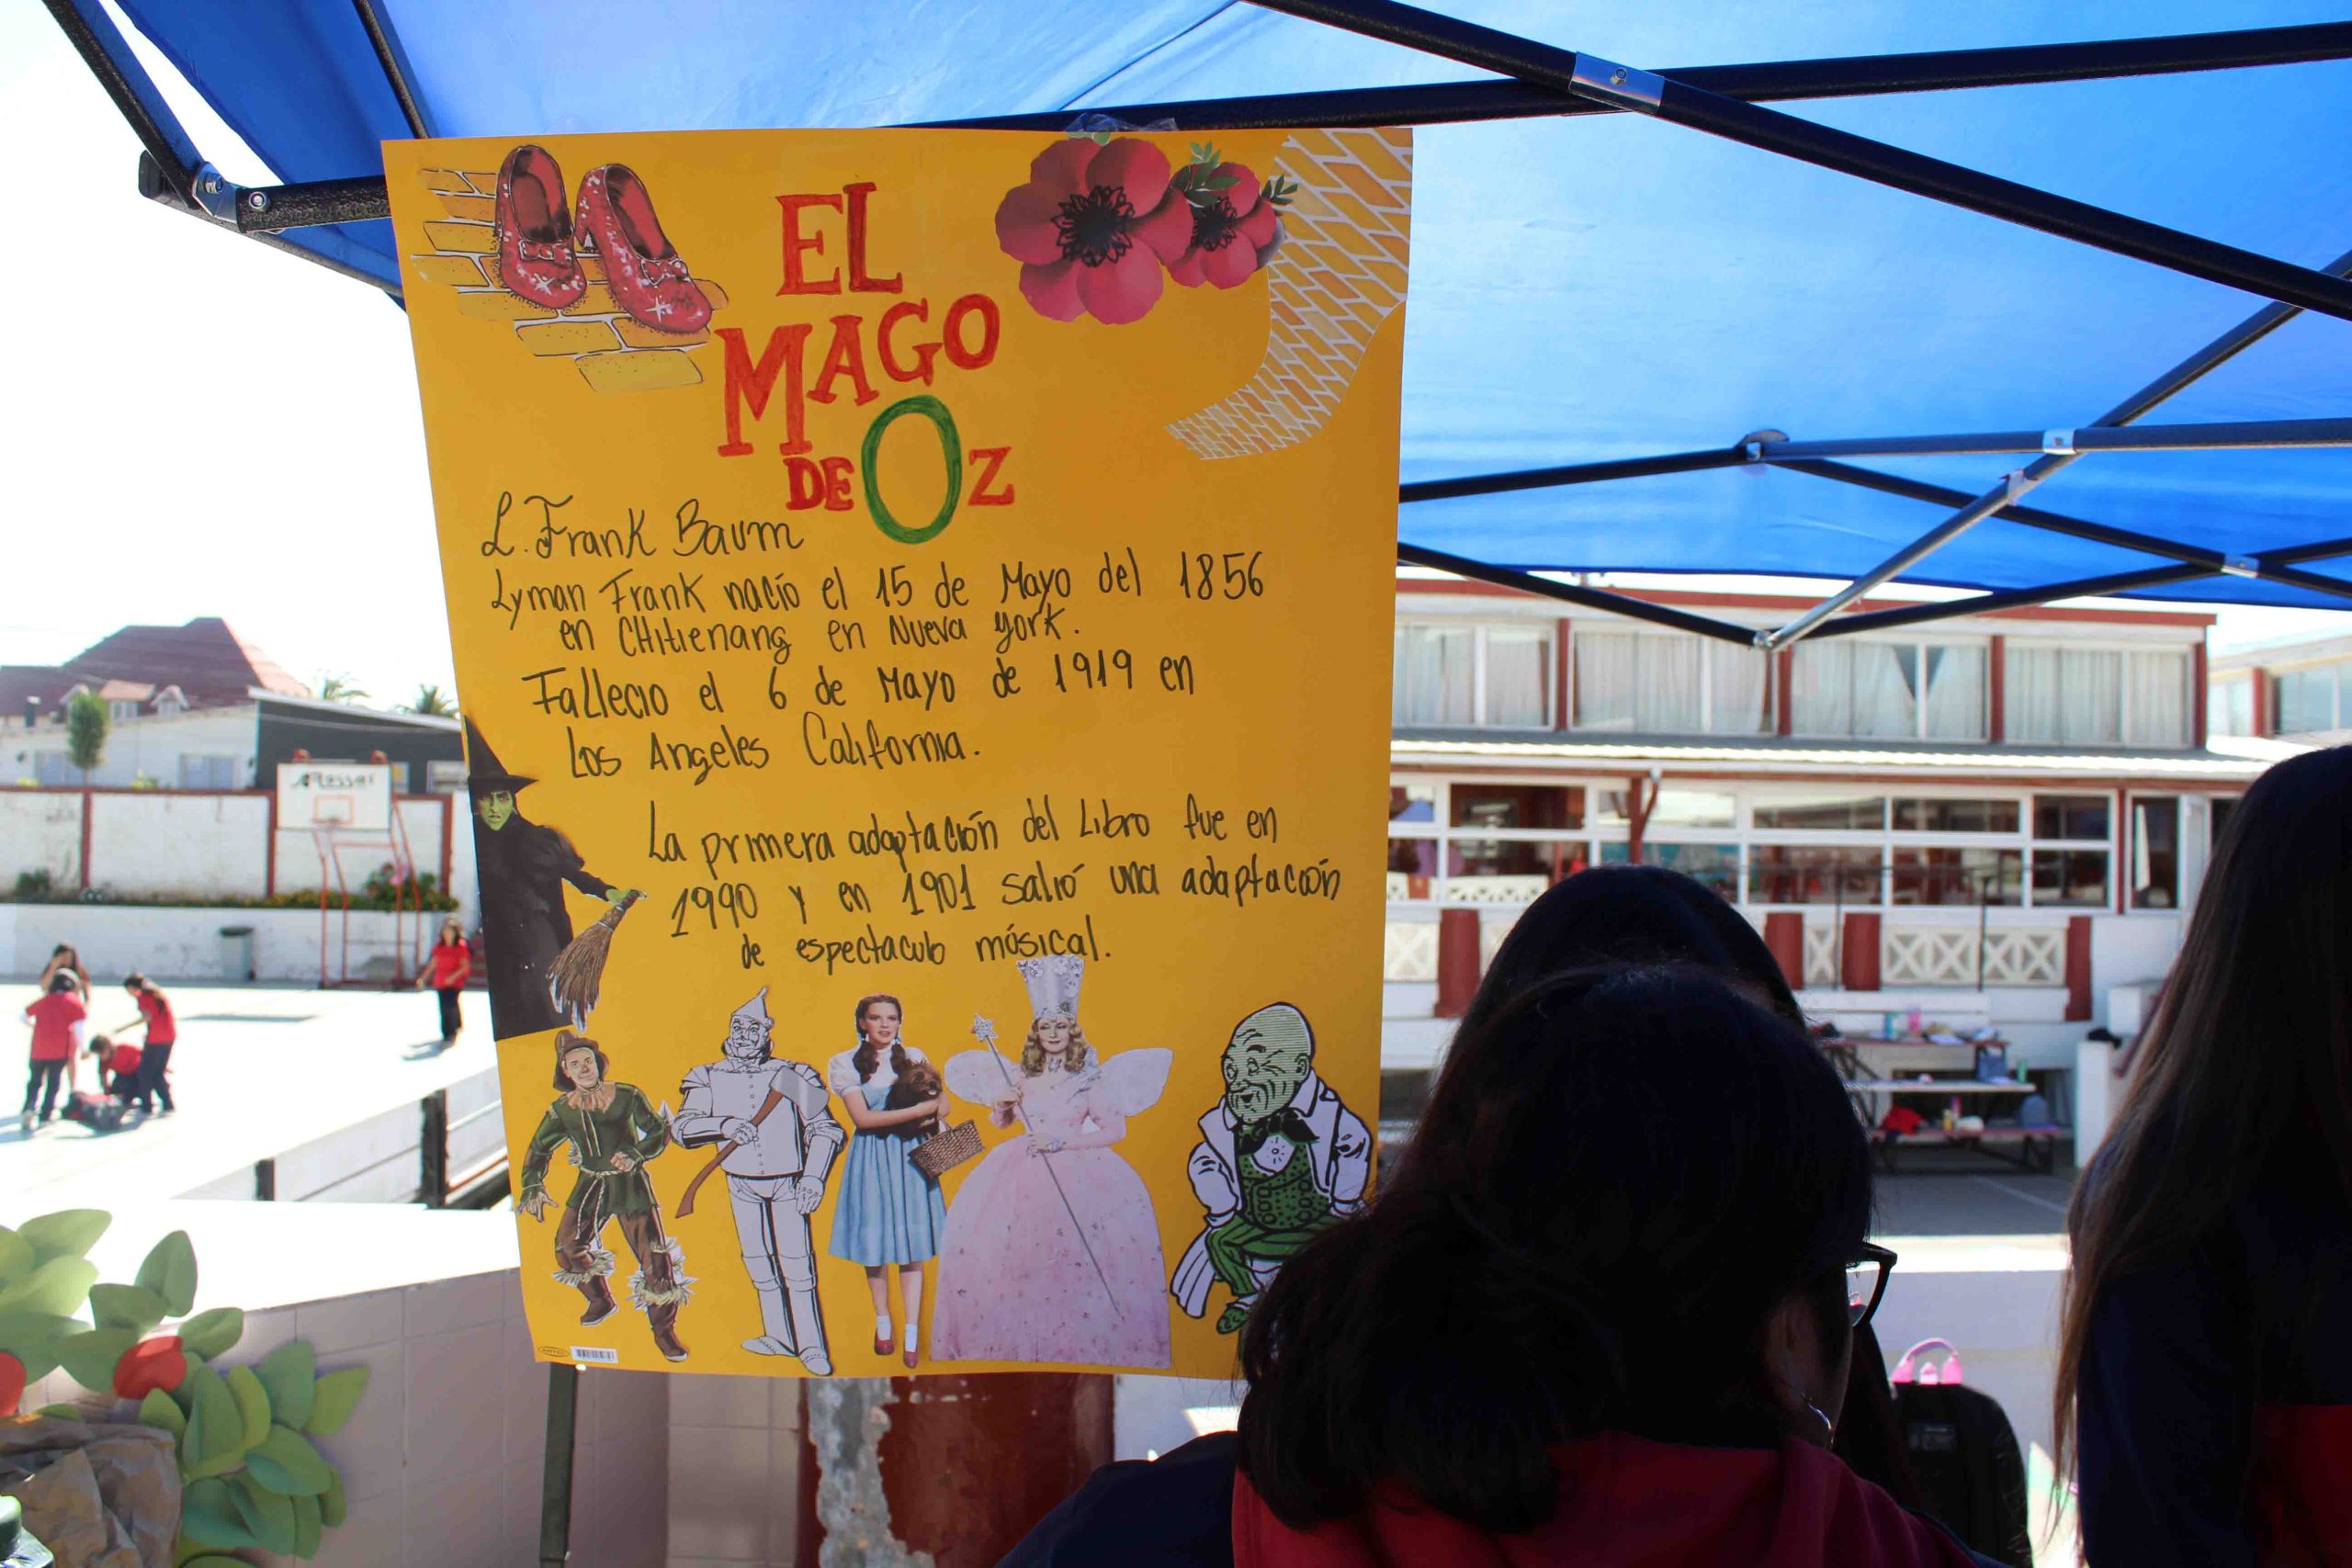 EL
MAGO
DE OZ
L. Frank Baum
Lyman Frank nacío el 15 de Mayo del 1856
en CHitienang en Nueva york.
Fallecio el 6 de Mayo de 1919 en
Los Angeles California.
La primera adaptación del Libro fue en
1990 y en 1901 salió una adaptación
de espectaculo músical.